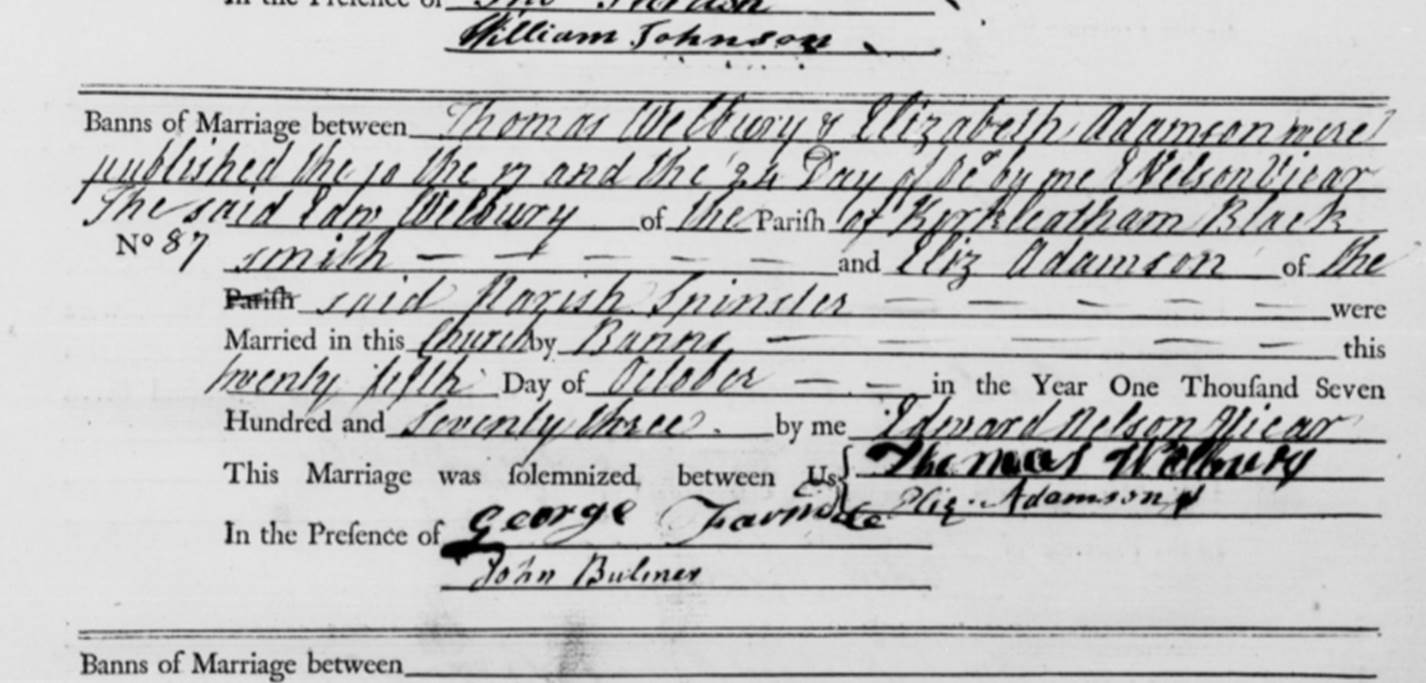 In the Presence of
William Johnson
Banns of Marriage between Thomas Welbury & Elizabeth Adamson were
published the 10 the 17 and the 24 Day of Oc by me E Nelson Vicar
The said Welbury of the Parish of Kirkleatham Black
No 87 smith and Eliz Adamson of the
Parish said Parish Spinster were
Married in this Church by Banns this
twenty fifth Day of October in the Year One Thousand Seven
Hundred and Seventy three by me Edward Nelson Vicar
This Marriage was solemnized between Us Thomas Welbury
Eliz. Adamson
In the Presence of George
John Bulmer
Banns of Marriage between